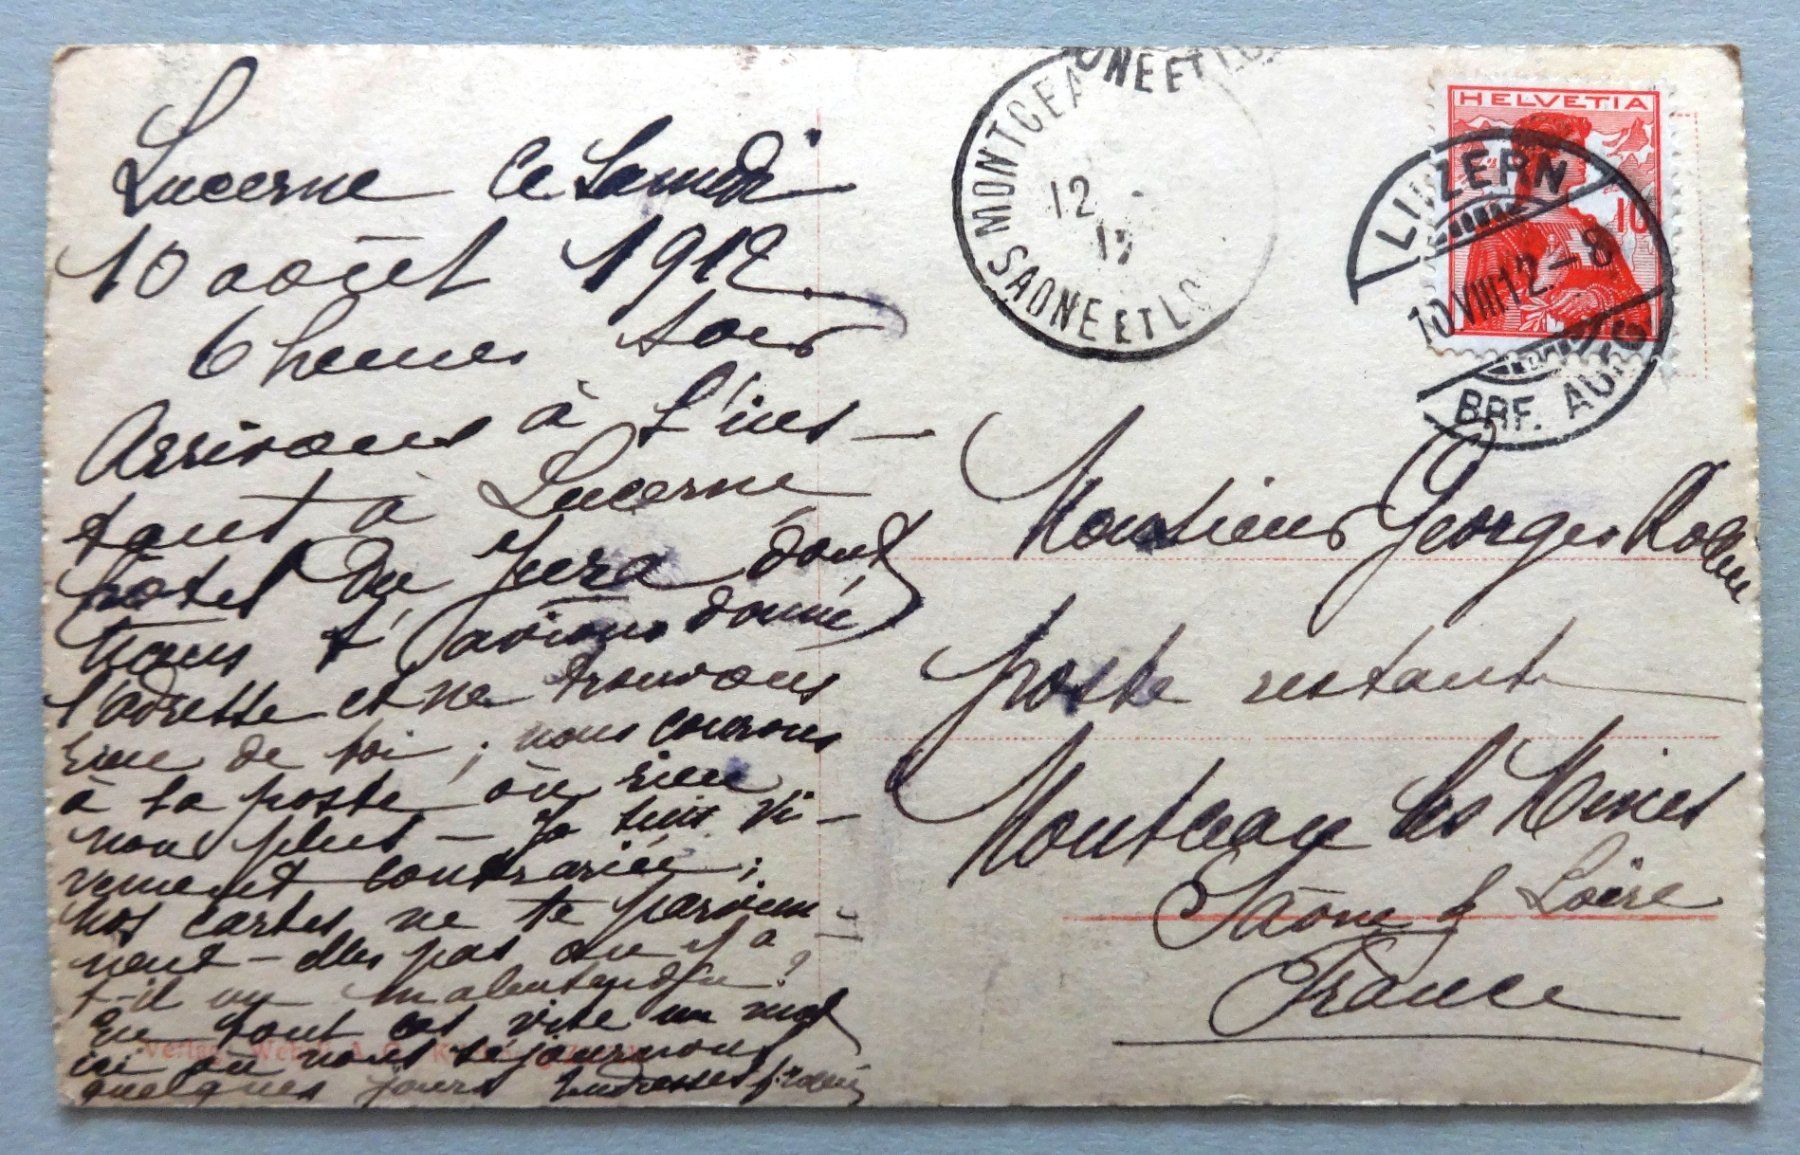 Lucerne ce Samedi
10 août 1912
6 heures soir
Arrivons à l'ins-
tant à Lucerne
hotel du Jura dont
nous t'avions donné
l'adresse et ne trouvons
rien de toi ; nous courons
à la poste où rien
non plus – Je suis vi-
vement contrariée ;
nos cartes ne te parvien-
nent-elles pas ou y a
t-il un malentendu ?
En tout cas vite un mot
ici où nous séjournons
quelques jours
Verlag
MONTCEA
SAONE ET LO
12
ONE ET LO
HELVETIA
10
LUZERN
10 VIII 12 – 8
BRF. AUFG
Monsieur Georges Rollin
poste restante
Montceau les Mines
Saône & Loire
France